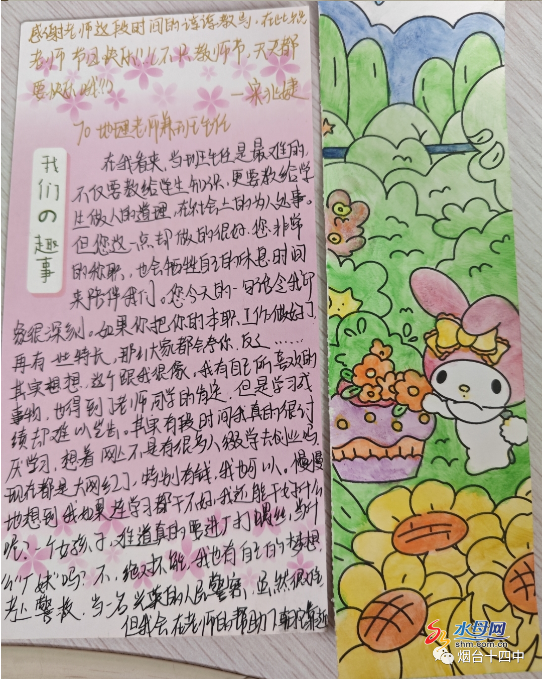 感谢老师这段时间的谆谆教导,在此祝
老师节日快乐!!!不只教师节,天天都
要快乐哦!!!
To 地理老师兼班主任
我们の趣事
在我看来,当班主任是最难的,
不仅要教给学生知识,更要教给学
生做人的道理,在社会上的为人处事。
但您这一点却做的很好。您非常
的称职,也会牺牲自己的休息时间
来陪伴我们。您今天的一句话令我印
象很深刻。如果你把你的本职工作做好了
再有一些特长,那么大家都会夸你,反之……
其实想想,这个跟我很像,我有自己所喜欢的
事物,也得到了老师同学的肯定,但是学习成
绩却难以启齿。其实有段时间我真的很讨
厌学习,想着网上不是有很多人辍学去创业吗
现在都是大网红了,特别有钱,我也可以,慢慢
地想到我如果连学习都干不好,我还能干好什么
呢,一个女孩子,难道真的要进厂打螺丝,当个
厂妹吗?不,绝对不能,我也有自己的梦想,
考上警校,当一名光荣的人民警察,虽然很难
但我会在老师的帮助下,期待靠近
水母网
shm.com.cn
烟台十四中